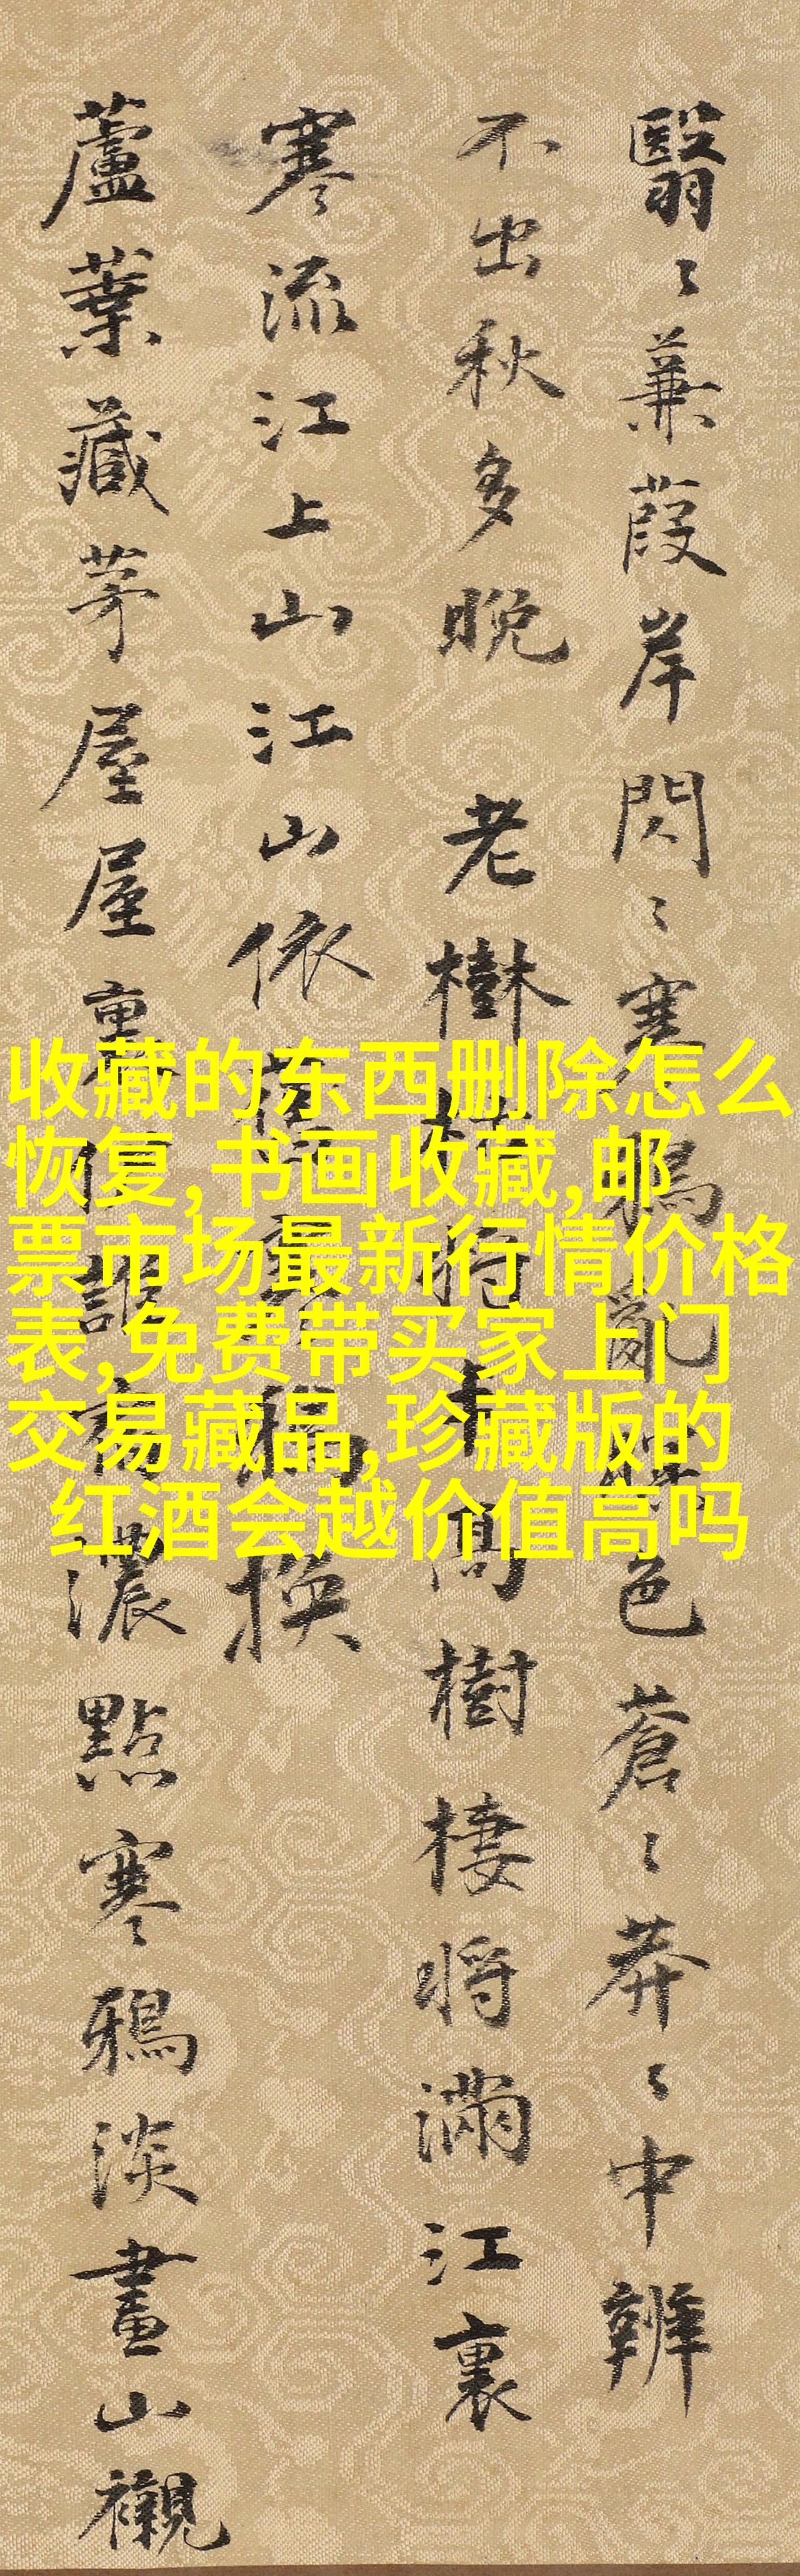 翳〻蒹葭岸閃〻寒鴉亂暝色蒼〻莽〻中辨
不出秋多晚 老樹將高樹棲將滿江裏
寒流江上山江山依舊鴉換
蘆葉藏茅屋屋濃點寒鴉淡畫山襯
收藏的东西删除怎么
恢复,书画收藏,邮
票市场最新行情价格
表,免费带买家上门
交易藏品,珍藏版的
红酒会越价值高吗